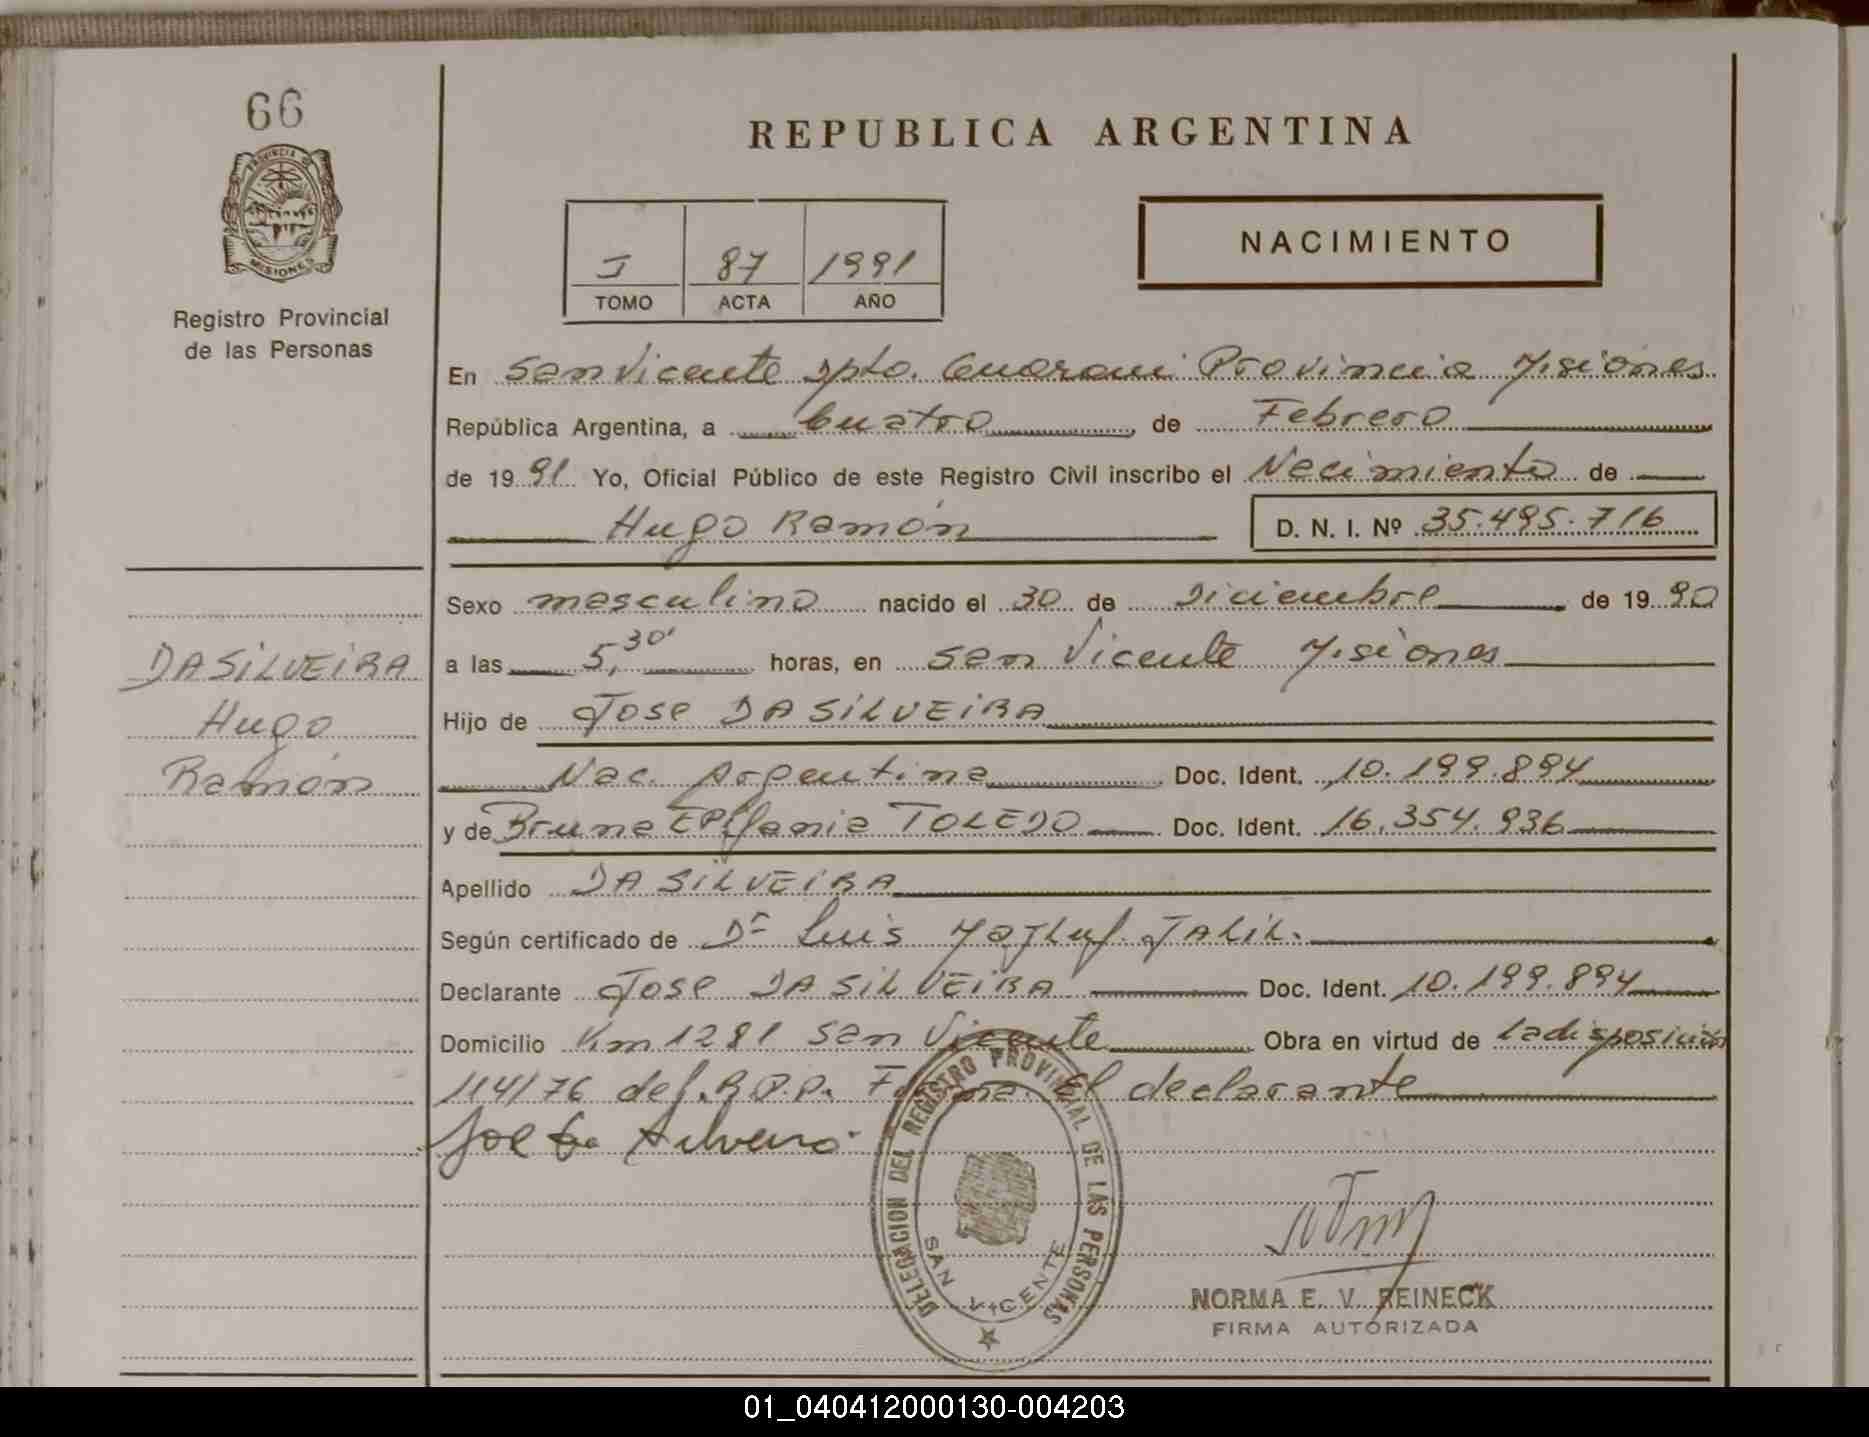 66
PROVINCIA DE
MISIONES
Registro Provincial
de las Personas
REPUBLICA ARGENTINA
I 87 1991
TOMO ACTA AÑO
NACIMIENTO
En San Vicente Dpto. Guarani Provincia Misiones
República Argentina, a Cuatro de Febrero
de 1991 Yo, Oficial Público de este Registro Civil inscribo el Nacimiento de
Hugo Ramón D. N. I. Nº 35.495.716
Sexo masculino nacido el 30 de Diciembre de 1990
a las 5,30' horas, en San Vicente Misiones
Hijo de Jose DA SILVEIRA
Nac. Argentina Doc. Ident. 10.199.894
y de Bruna EPifania TOLEDO Doc. Ident. 16.354.936
Apellido DA SILVEIRA
Según certificado de Dr Luis JALIL.
Declarante Jose DA SILVEIRA Doc. Ident. 10.199.894
Domicilio Km 1281 San Vicente Obra en virtud de la disposición
114/76 del R.P.P. Firma El declarante
DASILVEIRA
Hugo
Ramón
DELEGACION DEL REGISTRO PROVINCIAL DE LAS PERSONAS
SAN VICENTE
NORMA E. V. REINECK
FIRMA AUTORIZADA
01_040412000130-004203